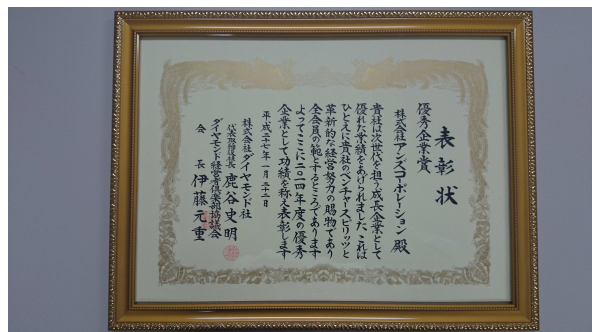 表彰状
優秀企業賞
株式会社アンズコーポレーション殿
貴社は次世代を担う成長企業として
優れた業績をあげられました これは
ひとえに貴社のベンチャースピリッツと
革新的な経営努力の賜物であり
全会員の範とするところであります
よってここに二〇一四年度の優秀
企業として功績を称え表彰します
平成二十七年一月二十二日
株式会社ダイヤモンド社
代表取締役社長 鹿谷史明
ダイヤモンド経営者倶楽部協議会
会長 伊藤元重